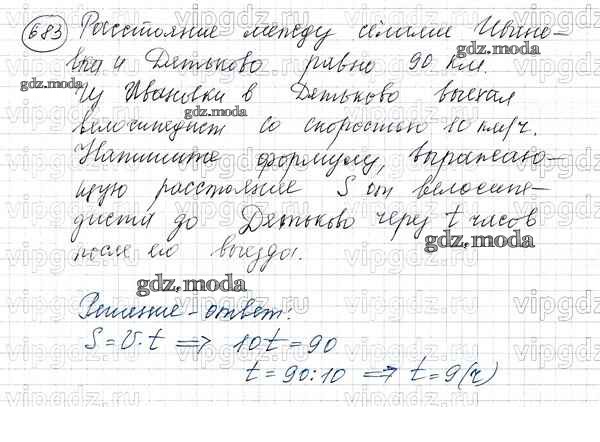 683 Расстояние между сёлами Ивано-
вка и Дятьково равно 90 км.
Из Ивановки в Дятьково выехал
велосипедист со скоростью 10 км/ч.
Напишите формулу, выражаю-
щую расстояние S от велосипе-
диста до Дятьково через t часов
после его выезда.
Решение-ответ:
S = V · t ⇒ 10t = 90
t = 90:10 ⇒ t = 9 (ч)
gdz.moda
gdz.moda
gdz.moda
gdz.moda
gdz.moda
gdz.moda
vipgdz.ru